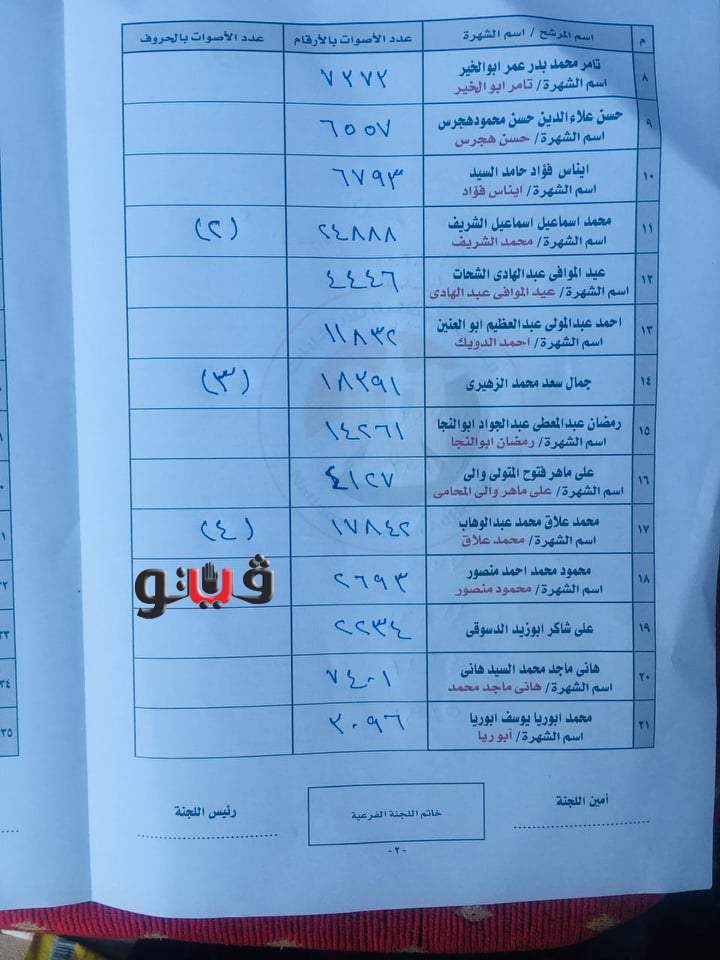 م
اسم المرشح / اسم الشهرة
عدد الأصوات بالأرقام
عدد الأصوات بالحروف
٨
تامر محمد بدر عمر ابوالخير
اسم الشهرة/ تامر ابو الخير
٧٢٧٢
٩
حسن علاءالدين حسن محمودهجرس
اسم الشهرة/ حسن هجرس
٦٥٥٧
١٠
ايناس فؤاد حامد السيد
اسم الشهرة/ ايناس فؤاد
٦٧٩٣
١١
محمد اسماعيل اسماعيل الشريف
اسم الشهرة/ محمد الشريف
٢٤٨٨٨
(٢)
١٢
عيد الموافى عبدالهادى الشحات
اسم الشهرة/ عيد الموافى عبد الهادى
٤٤٤٦
١٣
احمد عبدالمولى عبدالعظيم ابو العنين
اسم الشهرة/ احمد الدويك
١١٨٣٢
١٤
جمال سعد محمد الزهيرى
١٨٢٩١
(٣)
١٥
رمضان عبدالمعطى عبدالجواد ابوالنجا
اسم الشهرة/ رمضان ابوالنجا
١٤٢٦١
١٦
على ماهر فتوح المتولى والى
اسم الشهرة/ على ماهر والى المحامى
٤١٢٧
١٧
محمد علاق محمد عبدالوهاب
اسم الشهرة/ محمد علاق
١٧٨٤٢
(٤)
١٨
محمود محمد احمد منصور
اسم الشهرة/ محمود منصور
٢٦٩٣
ڤيتو
١٩
على شاكر ابوزيد الدسوقى
٢٢٣٤
٢٠
هانى ماجد محمد السيد هانى
اسم الشهرة/ هانى ماجد محمد
٧٤٠١
٢١
محمد ابوريا يوسف ابوريا
اسم الشهرة/ أبوريا
٣٠٩٦
أمين اللجنة
خاتم اللجنة الفرعية
رئيس اللجنة
-٢-
٣٣
٣٤
٣٥